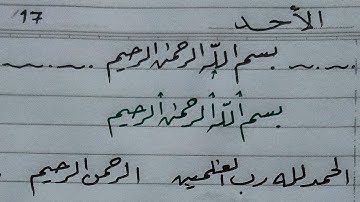 الأحد 17
بسم الله الرحمن الرحيم
بسم الله الرحمن الرحيم
الحمد لله رب العلمين الرحمن الرحيم